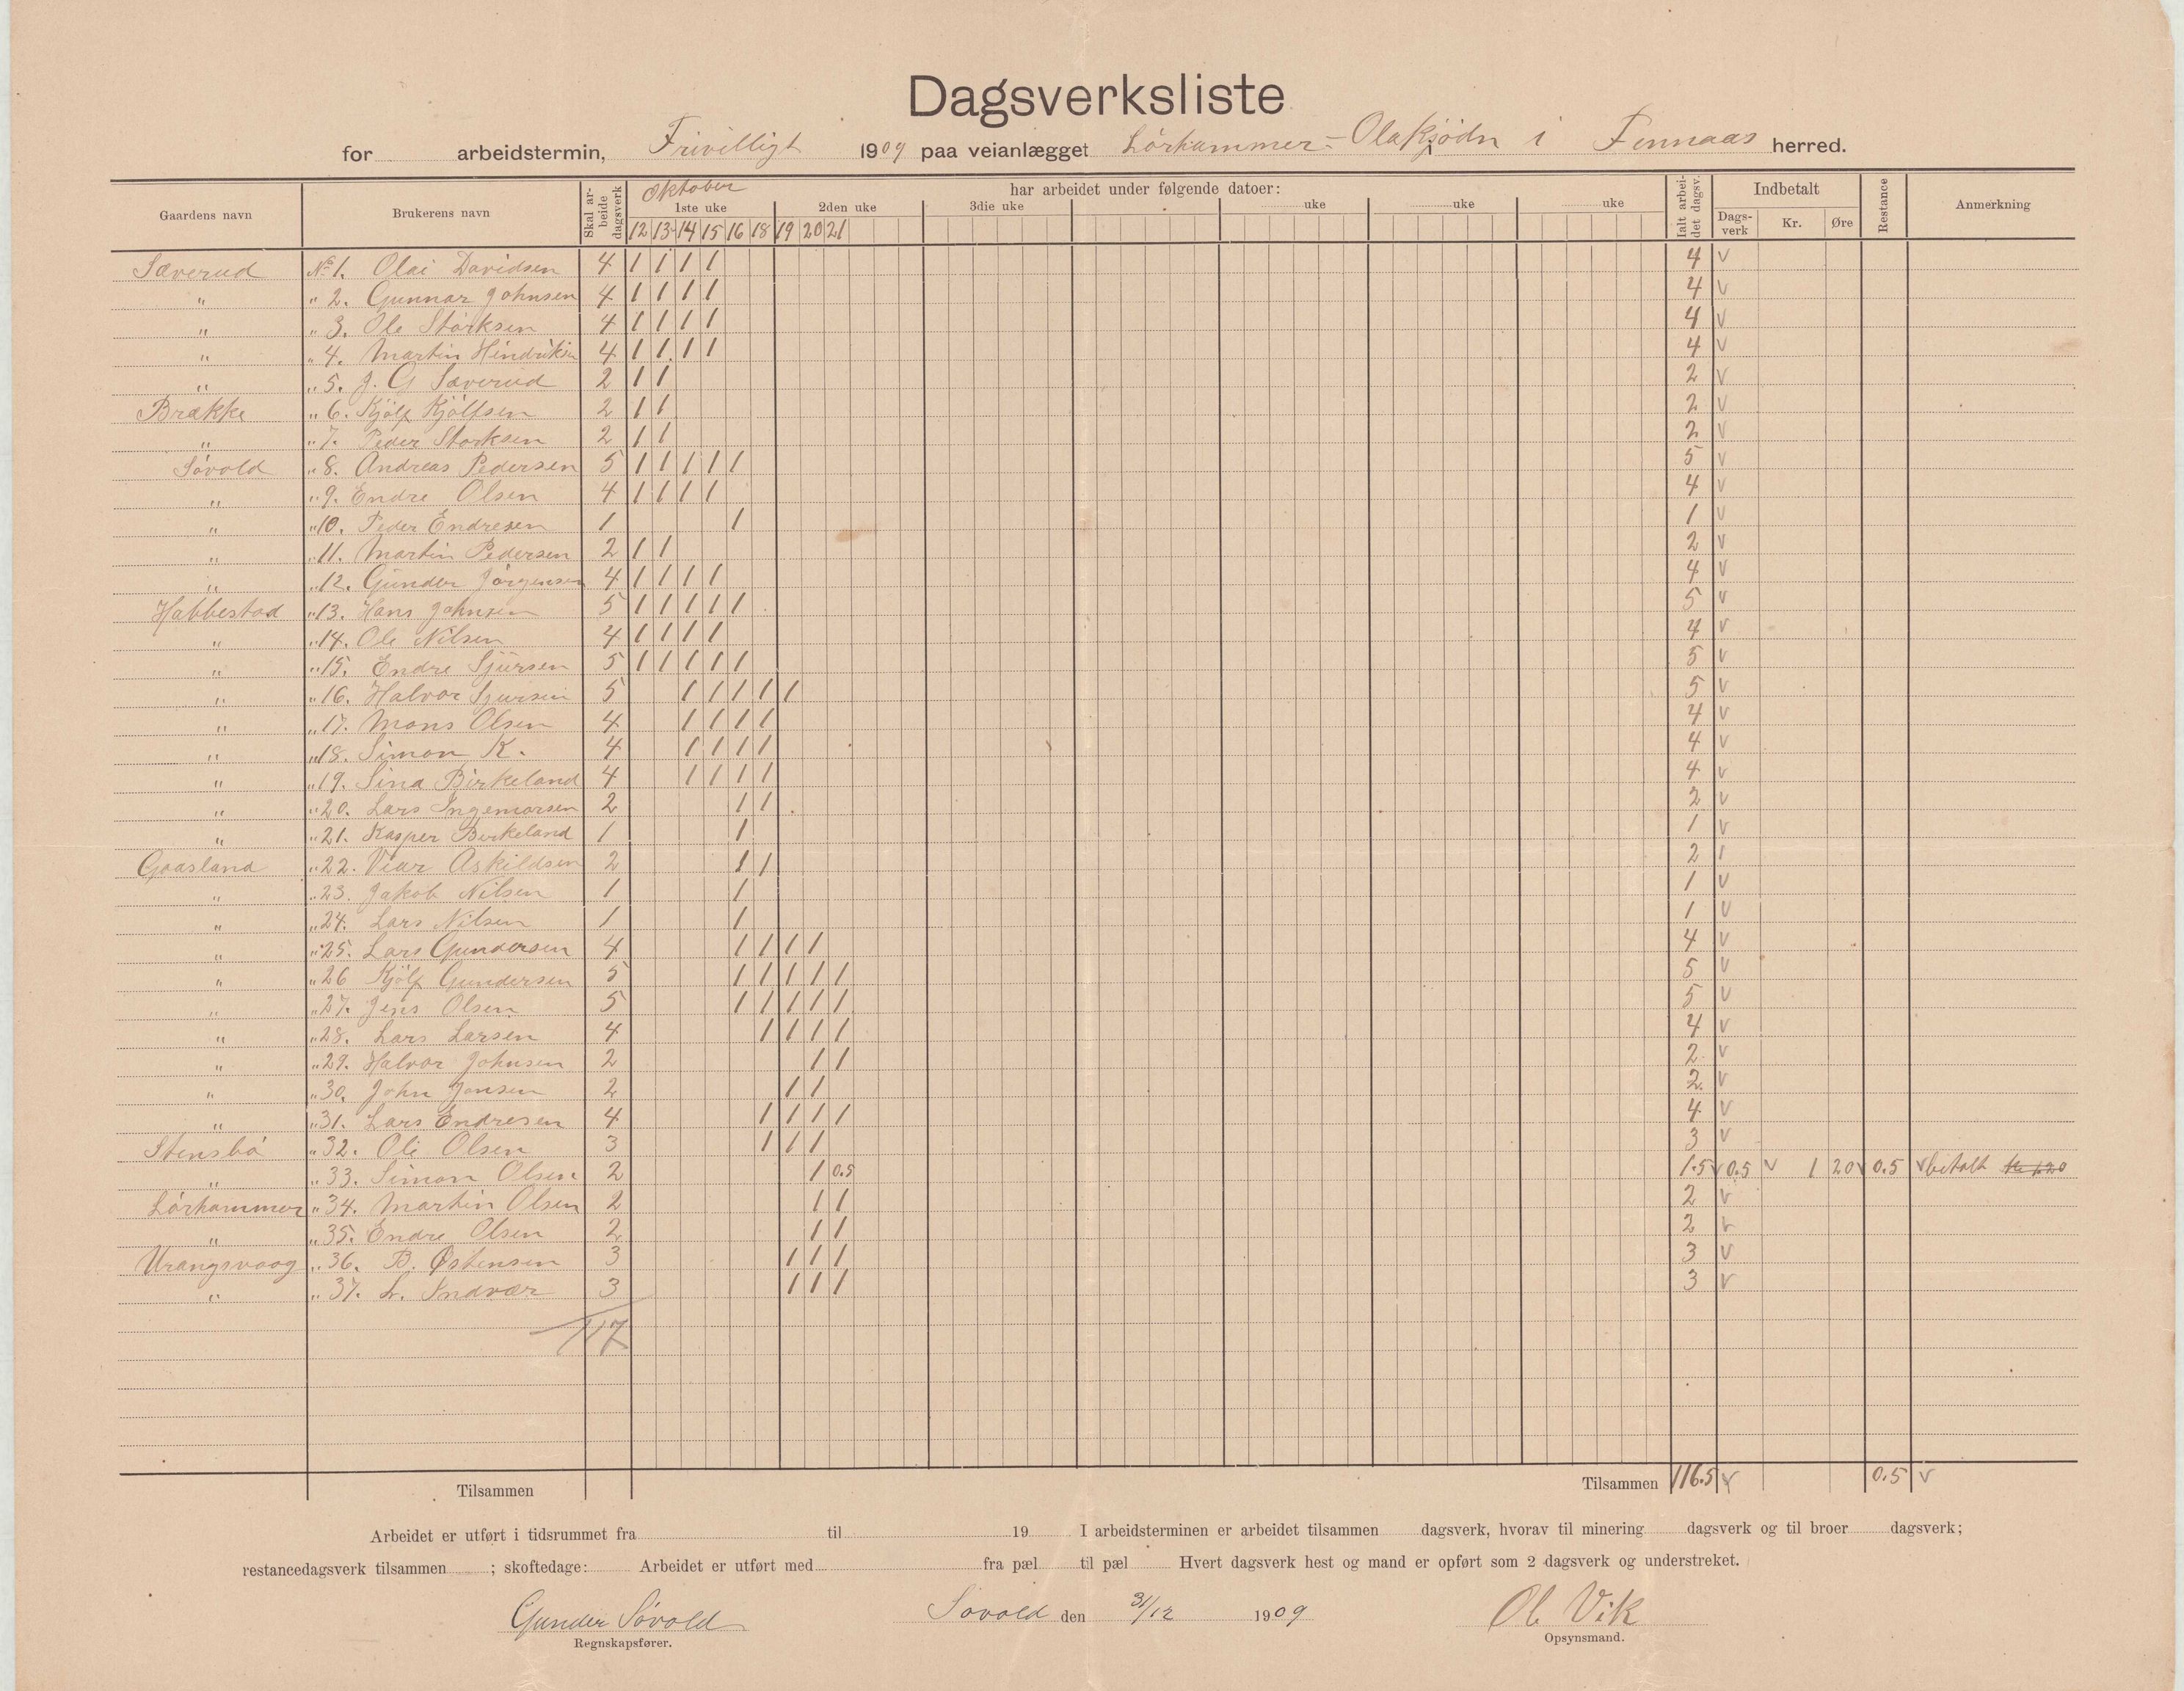 Dagsverksliste
for arbeidstermin, Frivilligt 1909 paa veianlægget Lørhammer - Olakjødn i Finnaas herred.
Gaardens navn Brukerens navn Skal arbeide dagsverk Oktober har arbeidet under følgende datoer: Ialt arbeidet dagsv. Indbetalt Restance Anmerkning
1ste uke 2den uke 3die uke uke uke uke Dagsverk Kr. Øre
12 13 14 15 16 18 19 20 21
Sæverud No 1. Olai Davidsen 4 1 1 1 1 4 v
" " 2. Gunnar Johnsen 4 1 1 1 1 4 v
" " 3. Ole Størksen 4 1 1 1 1 4 v
" " 4. Martin Hindriksen 4 1 1 1 1 4 v
" " 5. J. G Sæverud 2 1 1 2 v
Brække " 6. Kjølf Kjølfsen 2 1 1 2 v
" " 7. Peder Størksen 2 1 1 2 v
Søvold " 8. Andreas Pedersen 5 1 1 1 1 1 5 v
" " 9. Endre Olsen 4 1 1 1 1 4 v
" " 10. Peder Endresen 1 1 1 v
" " 11. Martin Pedersen 2 1 1 2 v
" " 12. Gunder Jørgensen 4 1 1 1 1 4 v
Habbestad " 13. Hans Johnsen 5 1 1 1 1 1 5 v
" " 14. Ole Nilsen 4 1 1 1 1 4 v
" " 15. Endre Sjursen 5 1 1 1 1 1 5 v
" " 16. Halvor Sjursen 5 1 1 1 1 1 5 v
" " 17. Mons Olsen 4 1 1 1 1 4 v
" " 18. Simon K. 4 1 1 1 1 4 v
" " 19. Sina Birkeland 4 1 1 1 1 4 v
" " 20. Lars Ingemorsen 2 1 1 2 v
" " 21. Kasper Birkeland 1 1 1 v
Gaasland " 22. Viar Askildsen 2 1 1 2 v
" " 23. Jakob Nilsen 1 1 1 v
" " 24. Lars Nilsen 1 1 1 v
" " 25. Lars Gundersen 4 1 1 1 1 4 v
" " 26 Kjölf Gundersen 5 1 1 1 1 1 5 v
" " 27. Jens Olsen 5 1 1 1 1 1 5 v
" " 28. Lars Larsen 4 1 1 1 1 4 v
" " 29. Halvor Johnsen 2 1 1 2 v
" " 30. John Jonsen 2 1 1 2 v
" " 31. Lars Endresen 4 1 1 1 1 4 v
Stensbø " 32. Ole Olsen 3 1 1 1 3 v
" " 33. Simon Olsen 2 1 0.5 1.5 v 0.5 v 1 20 v 0.5 v betalt kr 1,20
Lørhammer " 34. Martin Olsen 2 1 1 2 v
" " 35. Endre Olsen 2 1 1 2 v
Urangsvaag " 36. B. Østensen 3 1 1 1 3 v
" " 37. L. Indvær 3 1 1 1 3 v
117
Tilsammen Tilsammen 116.5 v 0.5 v
Arbeidet er utført i tidsrummet fra til 19 I arbeidsterminen er arbeidet tilsammen dagsverk, hvorav til minering dagsverk og til broer dagsverk;
restancedagsverk tilsammen ; skoftedage: Arbeidet er utført med fra pæl til pæl Hvert dagsverk hest og mand er opført som 2 dagsverk og understreket.
Gunder Søvold Søvold den 31/12 1909 Ole Vik
Regnskapsfører. Opsynsmand.